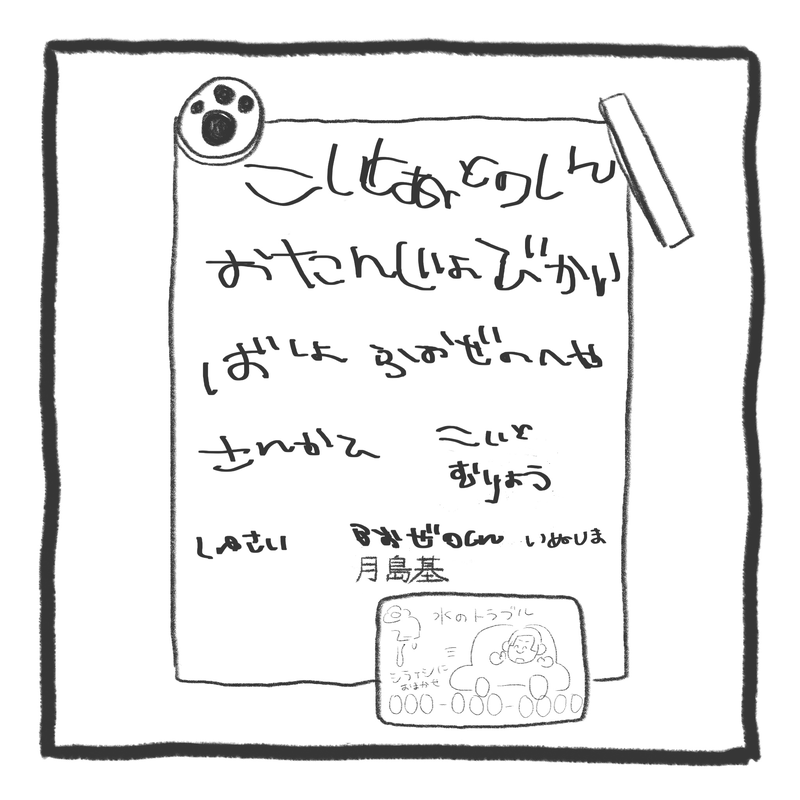 こいと おとのしん
おたんじょびかい
ばしょ ふおぜのへや
さんかひ こいと
むりょう
しゅさい おおぜのしん いぬしま
月島基
水のトラブル
シライシに
おまかせ
000-000-0000